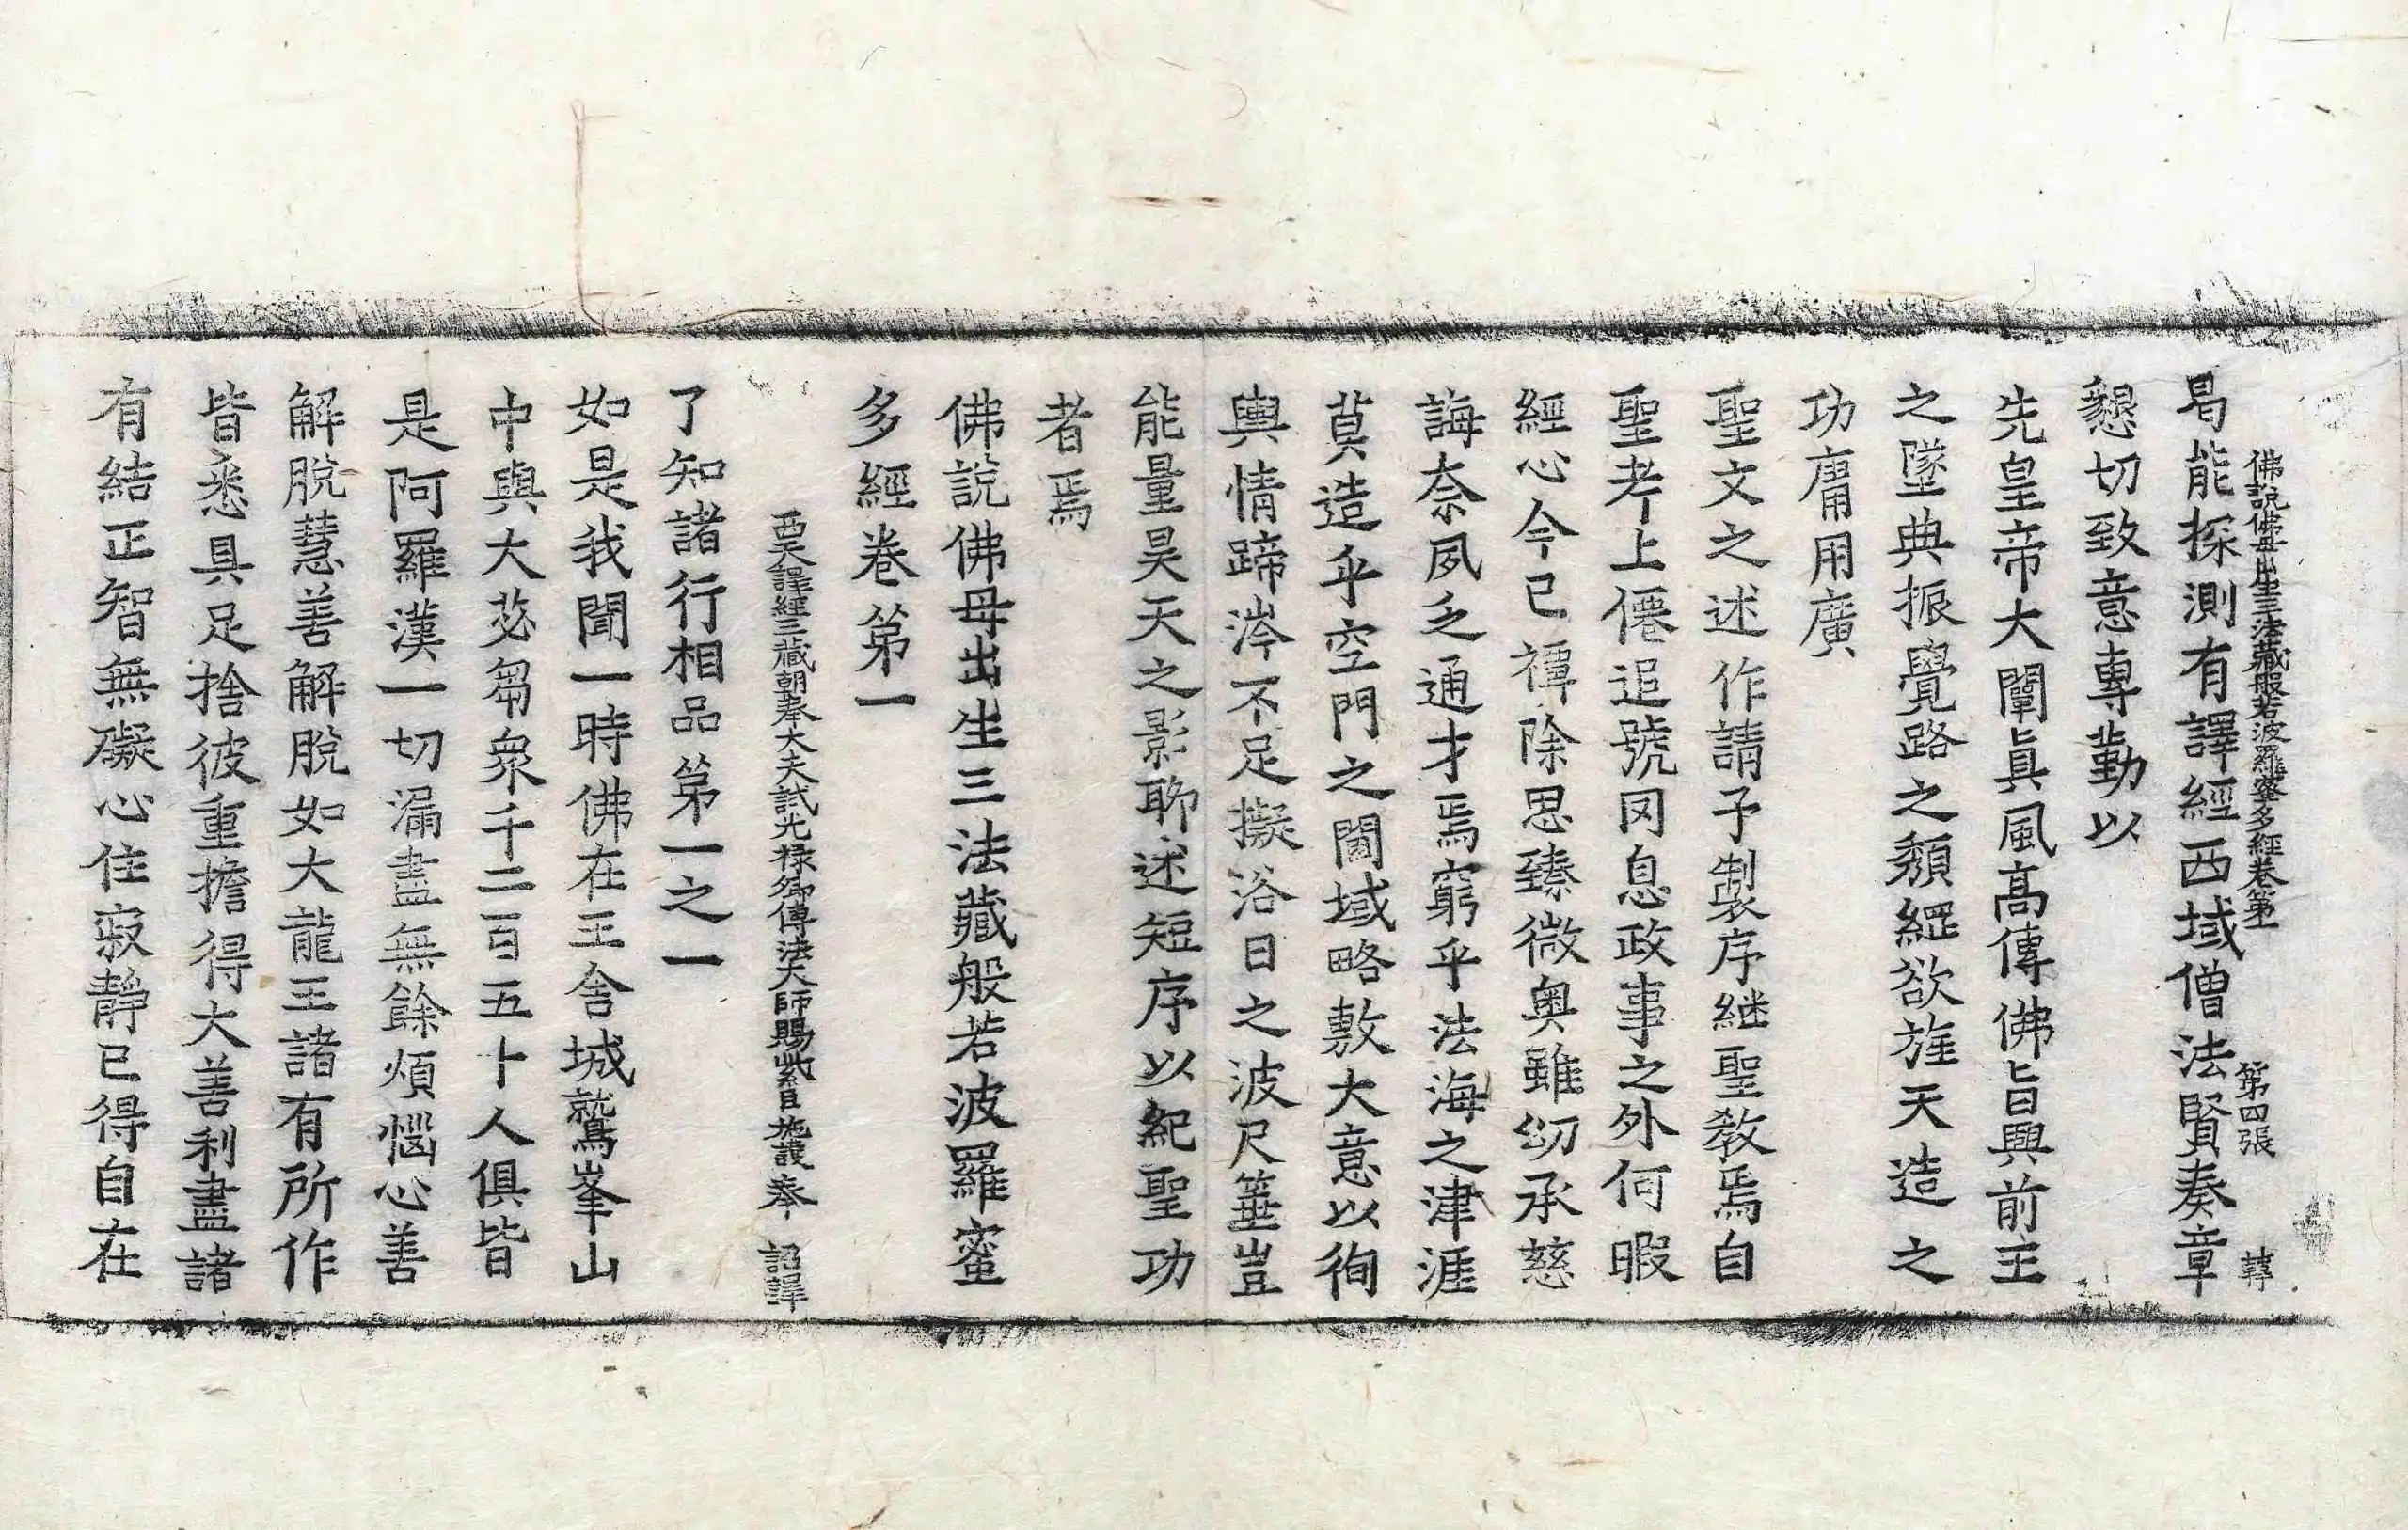 佛說佛母出生三法藏般若波羅蜜多經卷第一 第四張 韓
曷能探測有譯經西域僧法賢奏章
懇切致意專勤以
先皇帝大闡眞風高傳佛旨興前王
之墜典振覺路之頹綱欲旌天造之
功庸用廣
聖文之述作請予製序継聖教焉自
聖考上僊追號罔息政事之外何暇
經心今已禫除思臻微奧雖幼承慈
誨柰夙乏通才焉窮乎法海之津涯
莫造乎空門之閫域略敷大意以徇
輿情蹄涔不足擬浴日之波尺箠豈
能量昊天之影聊述短序以紀聖功
者焉
佛說佛母出生三法藏般若波羅蜜
多經卷第一
西天譯經三藏朝奉大夫試光祿卿傳法大師賜紫臣施護奉 詔譯
了知諸行相品第一之一
如是我聞一時佛在王舍城鷲峯山
中與大苾芻衆千二百五十人俱皆
是阿羅漢一切漏盡無餘煩惱心善
解脫慧善解脫如大龍王諸有所作
皆悉具足捨彼重擔得大善利盡諸
有結正智無礙心住寂靜已得自在